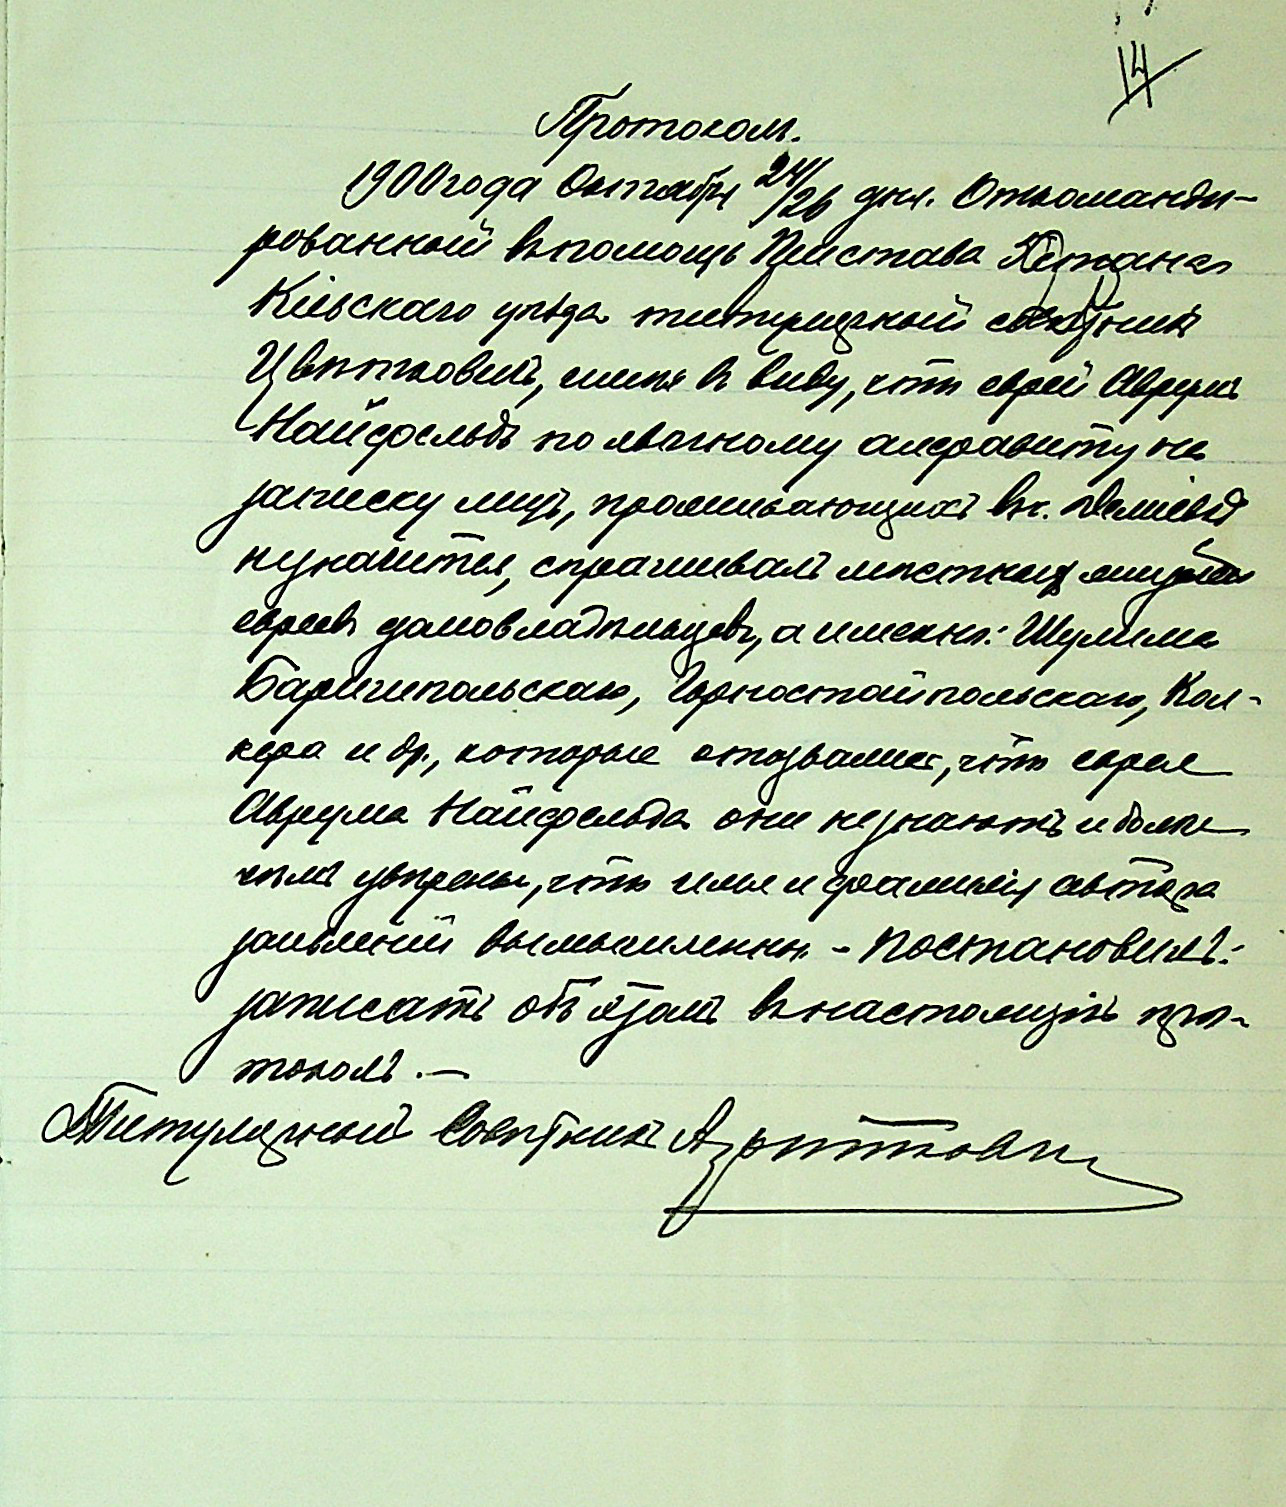 14
Протоколъ.
1900 года Октября 24/26 дня. Откоманди-
рованный въ помощь Пристава стана
Кіевскаго уѣзда титулярный совѣтникъ
имѣя въ виду, что еврей Аврумъ
Найфельдъ по явочному алфавиту на
записку лицъ, проживающихъ въ с. Деміевкѣ
не значится, спрашивалъ мѣстныхъ
евреевъ домовладѣльцевъ, а именно: Шулима
Баришпольскаго, Горностайпольскаго, Кол-
кера и др., которые отозвались, что еврея
Аврума Найфельда они не знаютъ и болѣе
чѣмъ увѣрены, что имя и фамилія автора
заявленій вымышленны. - Постановилъ:
записать объ этомъ въ настоящій про-
токолъ. —
Титулярный Совѣтникъ